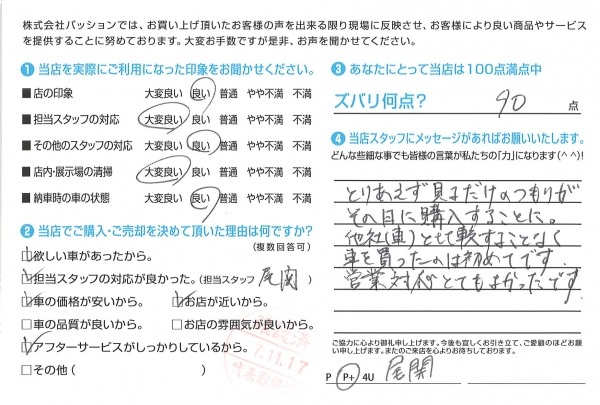 株式会社パッションでは、お買い上げ頂いたお客様の声を出来る限り現場に反映させ、お客様により良い商品やサービス
を提供することに努めております。大変お手数ですが是非、お声を聞かせてください。
❶ 当店を実際にご利用になった印象をお聞かせください。
■ 店の印象 大変良い 良い 普通 やや不満 不満
■ 担当スタッフの対応 大変良い 良い 普通 やや不満 不満
■ その他のスタッフの対応 大変良い 良い 普通 やや不満 不満
■ 店内・展示場の清掃 大変良い 良い 普通 やや不満 不満
■ 納車時の車の状態 大変良い 良い 普通 やや不満 不満
❷ 当店でご購入・ご売却を決めて頂いた理由は何ですか?
(複数回答可)
☑欲しい車があったから。
☑担当スタッフの対応が良かった。(担当スタッフ 尾関 )
☑車の価格が安いから。 ☑お店が近いから。
□車の品質が良いから。 □お店の雰囲気が良いから。
☑アフターサービスがしっかりしているから。
□その他( )
7.11.17
❸ あなたにとって当店は100点満点中
ズバリ何点? 90 点
❹ 当店スタッフにメッセージがあればお願いいたします。
どんな些細な事でも皆様の言葉が私たちの「力」になります(^^)!
とりあえず見るだけのつもりが
その日に購入することに。
他社(車)と比較することなく
車を買ったのは初めてです。
営業対応とてもよかったです。
ご協力に心より御礼申し上げます。今後も宜しくお引き立て、ご愛顧のほどお願
い申し上げます。またのご来店を心よりお待ちしております。
P P+ 4U 尾関